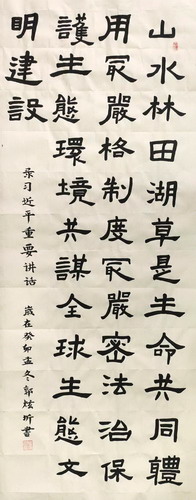 山水林田湖草是生命共同軆
用冣嚴格制度冣嚴密法治保
護生態環境共謀全球生態文
明建設
录习近平重要讲话
歲在癸卯孟冬郭炫昕書